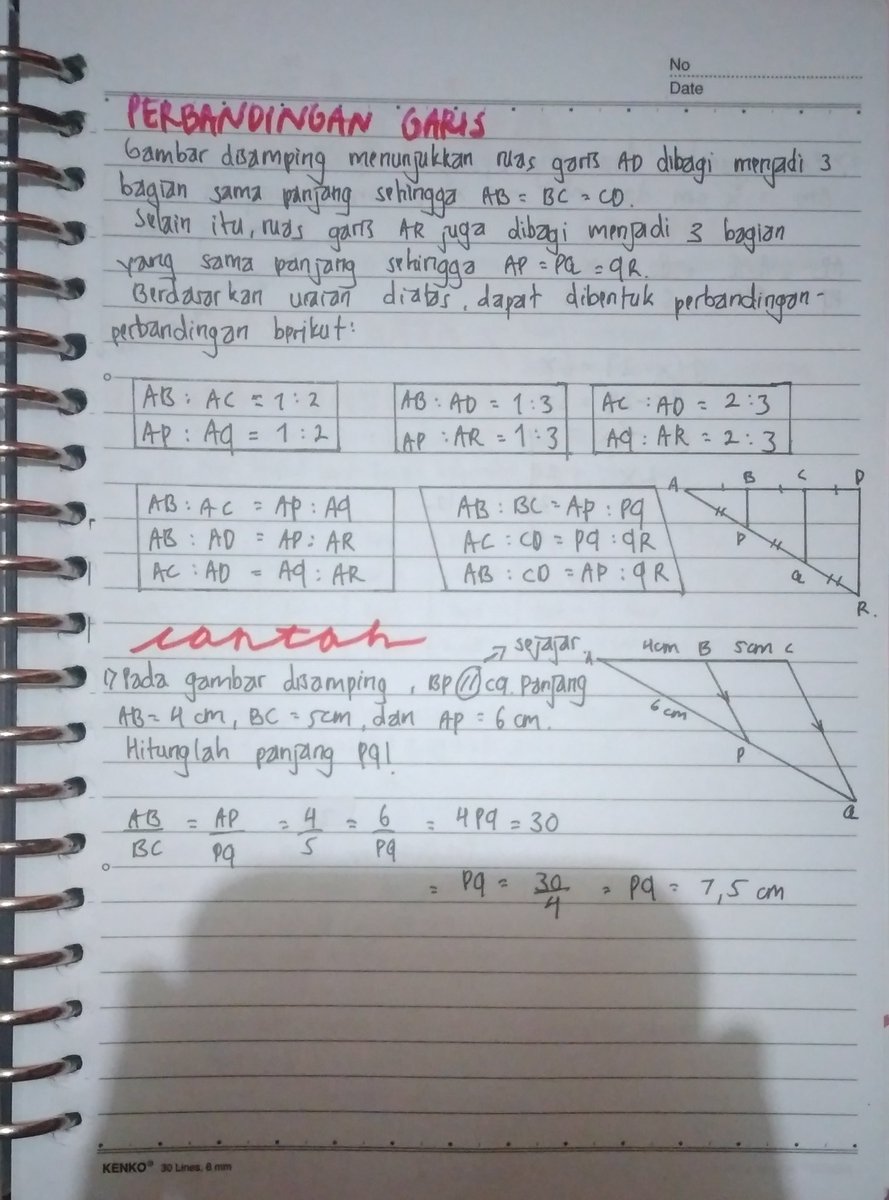 No
Date
PERBANDINGAN GARIS
Gambar disamping menunjukkan ruas garis AD dibagi menjadi 3
bagian sama panjang sehingga AB = BC = CD.
Selain itu, ruas garis AR juga dibagi menjadi 3 bagian
yang sama panjang sehingga AP = PQ = QR.
Berdasarkan uraian diatas, dapat dibentuk perbandingan-
perbandingan berikut:
AB : AC = 1 : 2
AP : AQ = 1 : 2
AB : AD = 1 : 3
AP : AR = 1 : 3
AC : AD = 2 : 3
AQ : AR = 2 : 3
AB : AC = AP : AQ
AB : AD = AP : AR
AC : AD = AQ : AR
AB : BC = AP : PQ
AC : CD = PQ : QR
AB : CD = AP : QR
A B C D
P
Q
R.
contoh
→ sejajar
A 4cm B 5cm C
6 cm
P
Q
1) Pada gambar disamping, BP // CQ. Panjang
AB = 4 cm, BC = 5cm, dan AP = 6 cm.
Hitunglah panjang PQ!
AB/BC = AP/PQ = 4/5 = 6/PQ = 4PQ = 30
= PQ = 30/4 = PQ = 7,5 cm
KENKO® 30 Lines. 8 mm